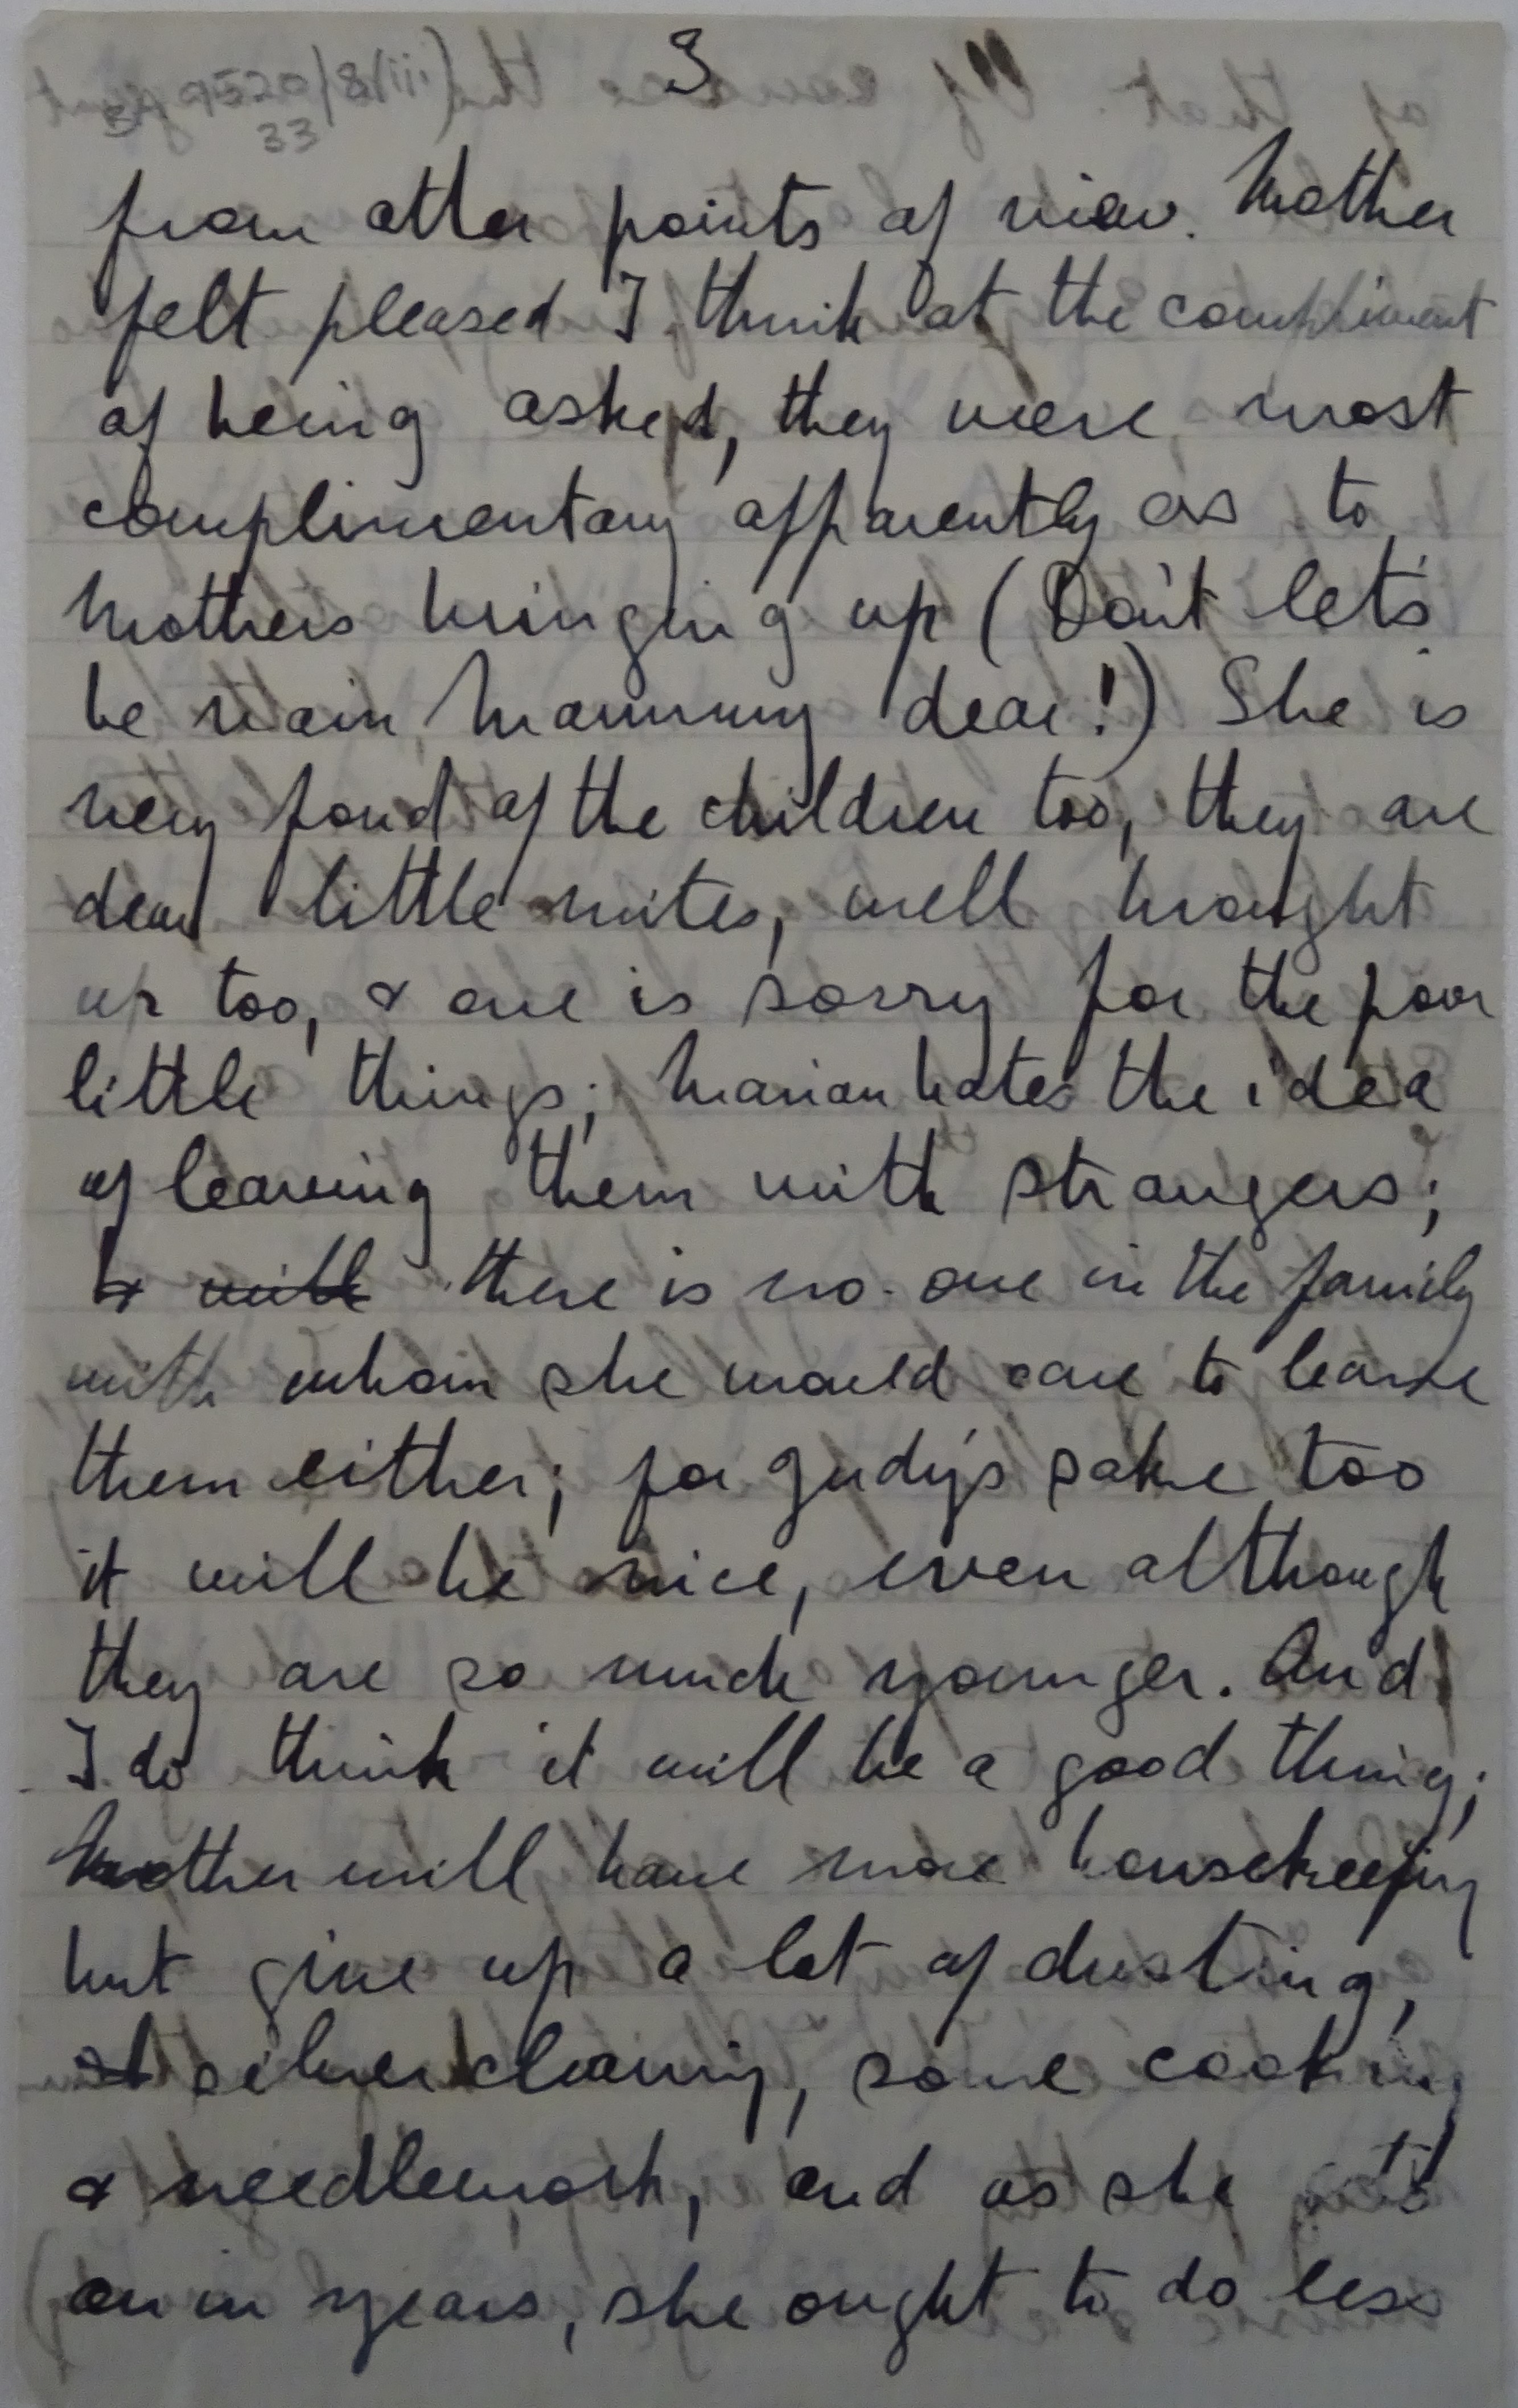 3
9520/8/iii
33
from other points of view. Mother
felt pleased I think at the compliment
of being asked, they were most
complimentary apparently as to
Mothers bringing up (Don't let's
be vain, Mammy dear!) She is
very fond of the children too, they are
dear little mites, well brought
up too, & one is sorry for the poor
little things; Marian hates the idea
of leaving them with strangers;
& with there is no-one in the family
with whom she would care to leave
them either; for Judy's sake too
it will be nice, even although
they are so much younger. And
I do think it will be a good thing;
Mother will have more housekeeping
but give up a lot of dusting,
silver cleaning, some cooking
& needlework, and as she gets
on in years, she ought to do less